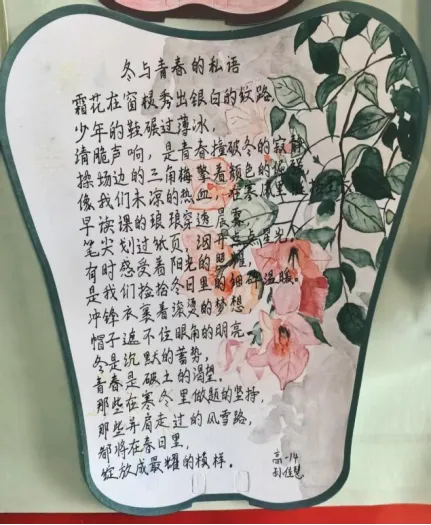 冬与青春的私语
霜花在窗棂秀出银白的纹路,
少年的鞋碾过薄冰,
清脆声响,是青春撞破冬的寂静
操场边的三角梅擎着颜色的
像我们未凉的热血,在寒风里
早读课的琅琅穿透晨雾,
笔尖划过纸页,洇开 星光,
有时感受着阳光的照耀,
是我们捡拾冬日里的细碎温暖。
冲锋衣裹着滚烫的梦想
帽子遮不住眼角的明亮
冬是沉默的蓄势,
青春是破土的渴望。
那些在寒冬里做题的坚持,
那些并肩走过的风雪路,
都将在春日里,
绽放成最耀的模样。
高一14